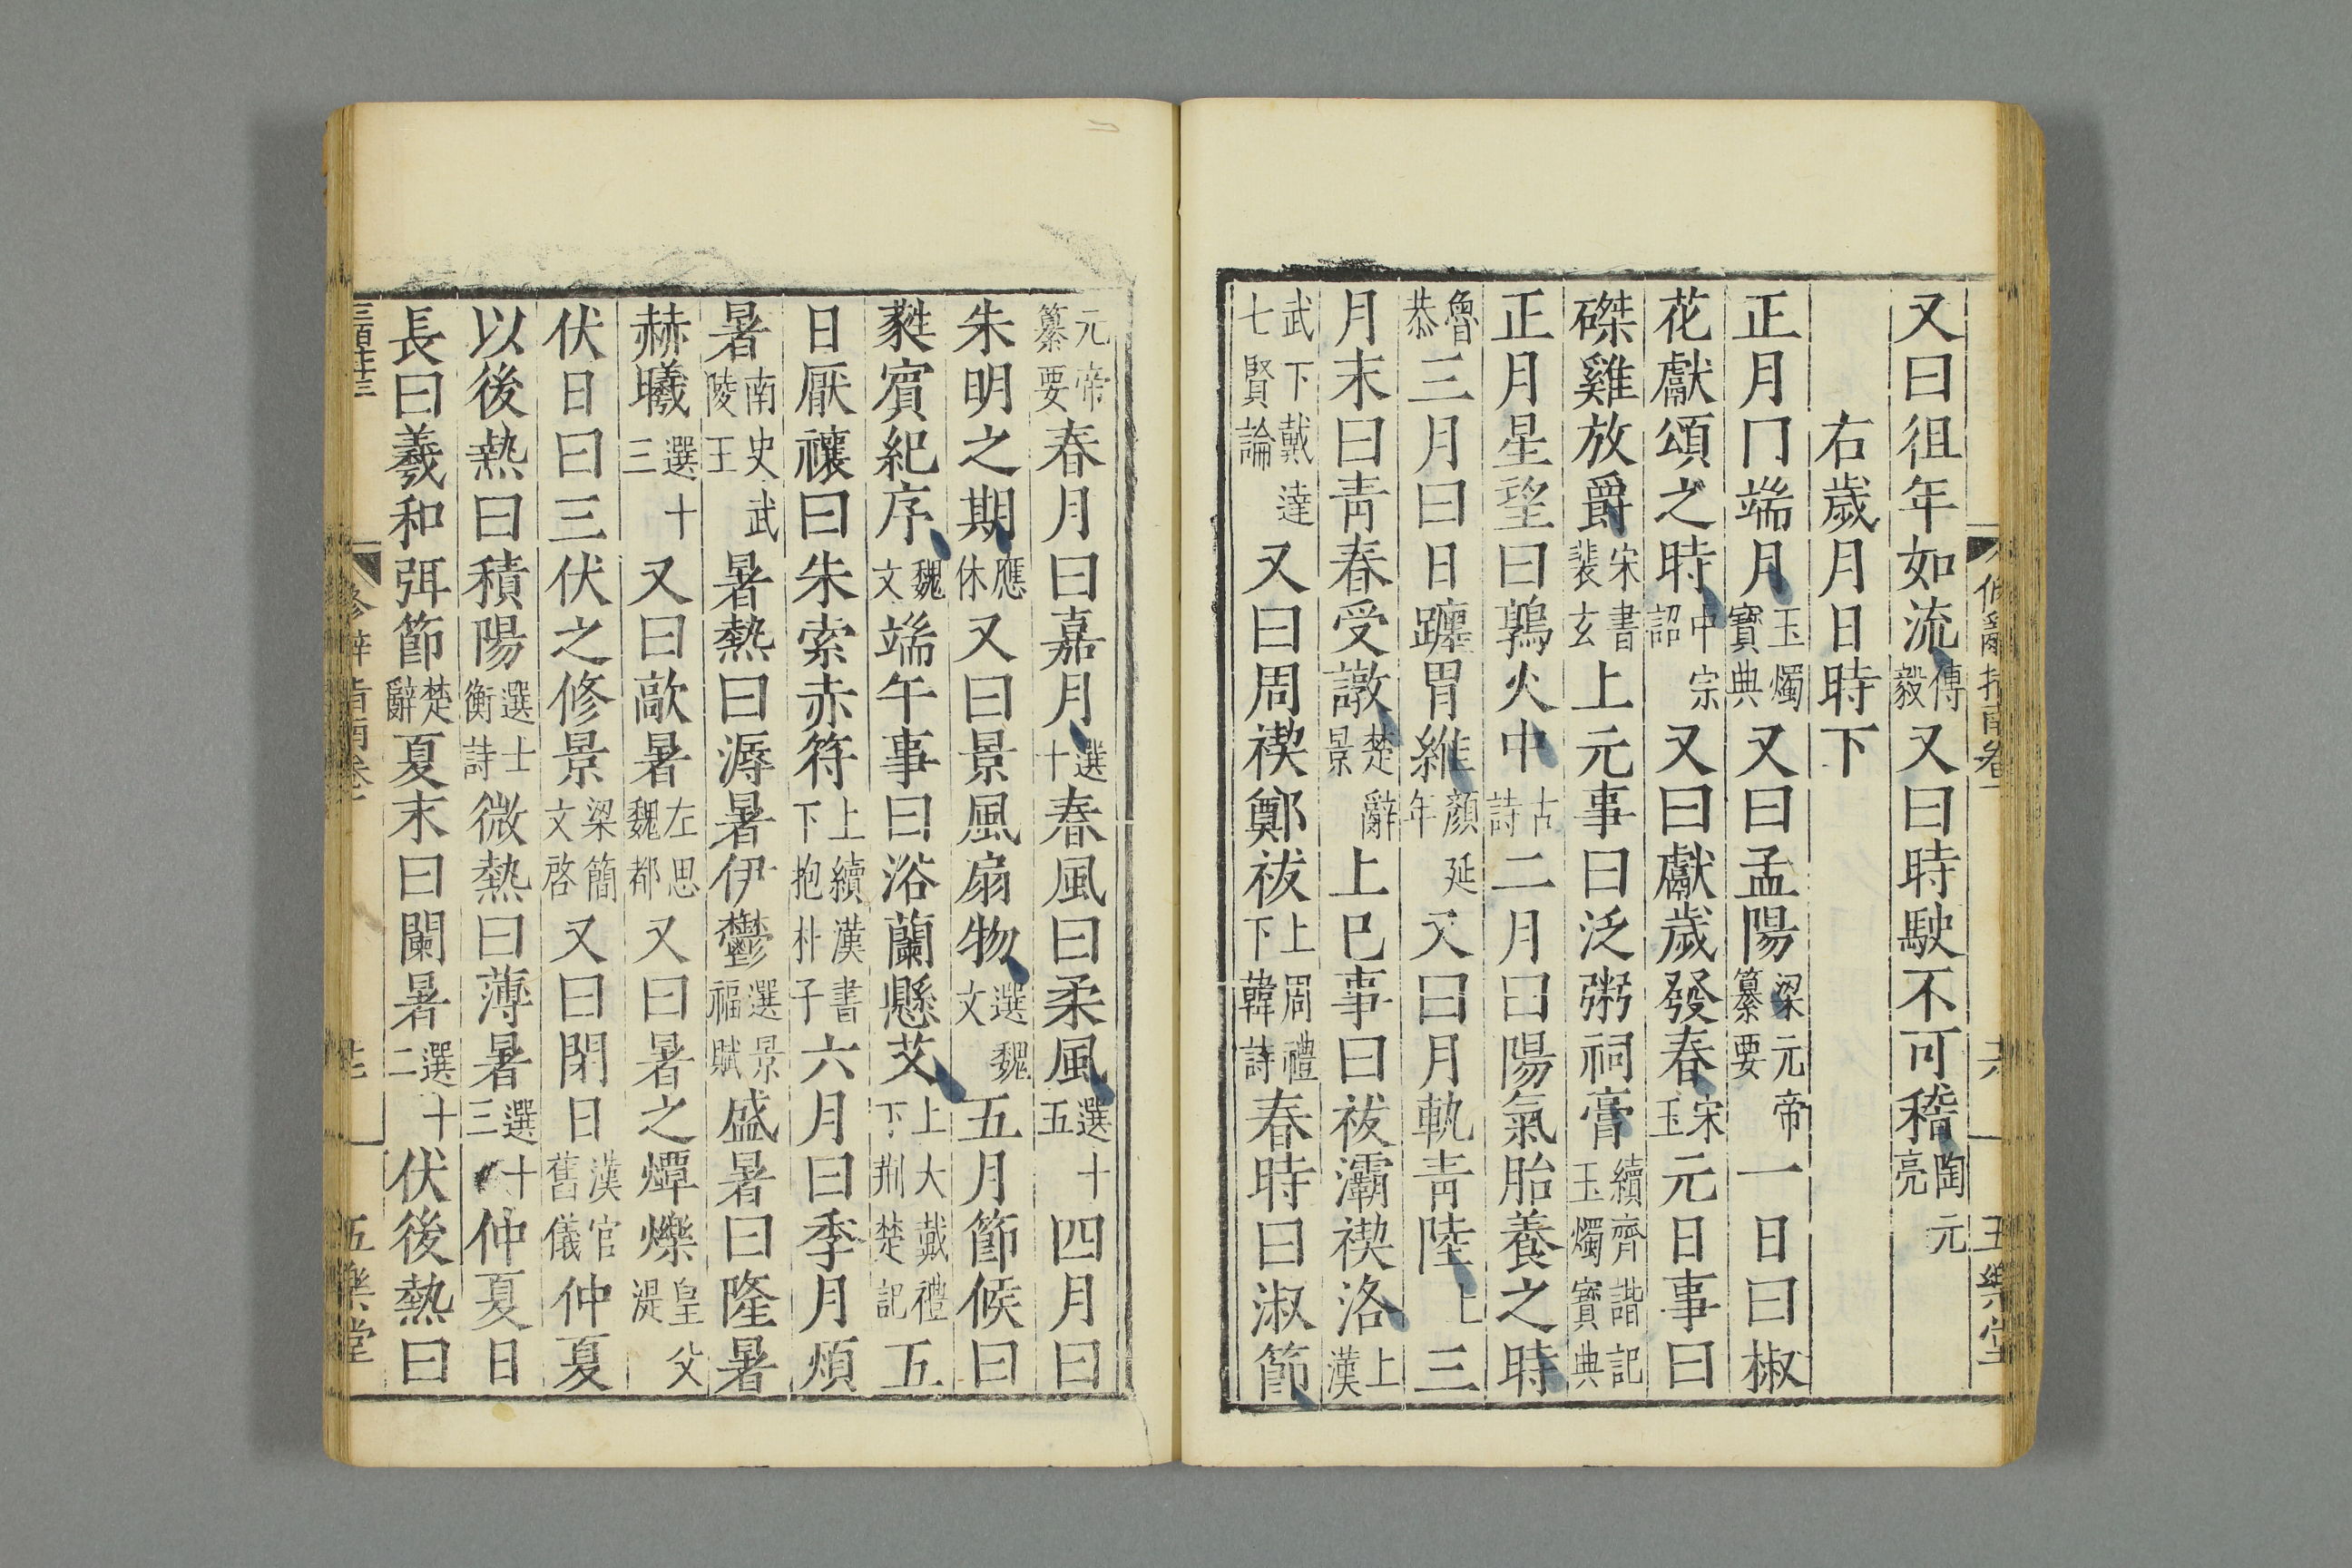 又曰徂年如流傅毅又曰時駛不可稽陶元亮
右歲月日時下
正月冂端月玉燭寶典又曰孟陽梁元帝纂要一日曰椒
花獻頌之時中宗詔又曰獻歲發春宋玉元日事曰
磔雞放爵宋書裴玄上元事曰泛粥祠膏續齊諧記玉燭寶典
正月星朢曰鶉火中古詩二月曰陽氣胎養之時
魯恭三月曰日躔胃維顏延年又曰月軌靑陸上三
月末曰靑春受謝楚辭景上巳事曰祓灞禊洛上漢
武下戴達七賢論又曰周禊鄭祓上周禮下韓詩春時曰淑節
元帝纂要春月曰嘉月選十春風曰柔風選十五四月曰
朱明之期應休又曰景風扇物選魏文五月節候曰
蕤賓紀序魏文端午事曰浴蘭懸艾上大戴禮下荆楚記五
日厭禳曰朱索赤符上續漢書下抱朴子六月曰季月煩
暑南史武陵王暑熱曰溽暑伊鬱選景福賦盛暑曰隆暑
赫曦選十三又曰歊暑左思魏都又曰暑之燂爍皇父湜
伏日曰三伏之修景梁簡文啓又曰閉日漢官舊儀仲夏
以後熱曰積陽選士衡詩微熱曰薄暑選十三仲夏日
長曰羲和弭節楚辭夏末曰闌暑選十二伏後熱曰
修辭指南卷
五樂堂